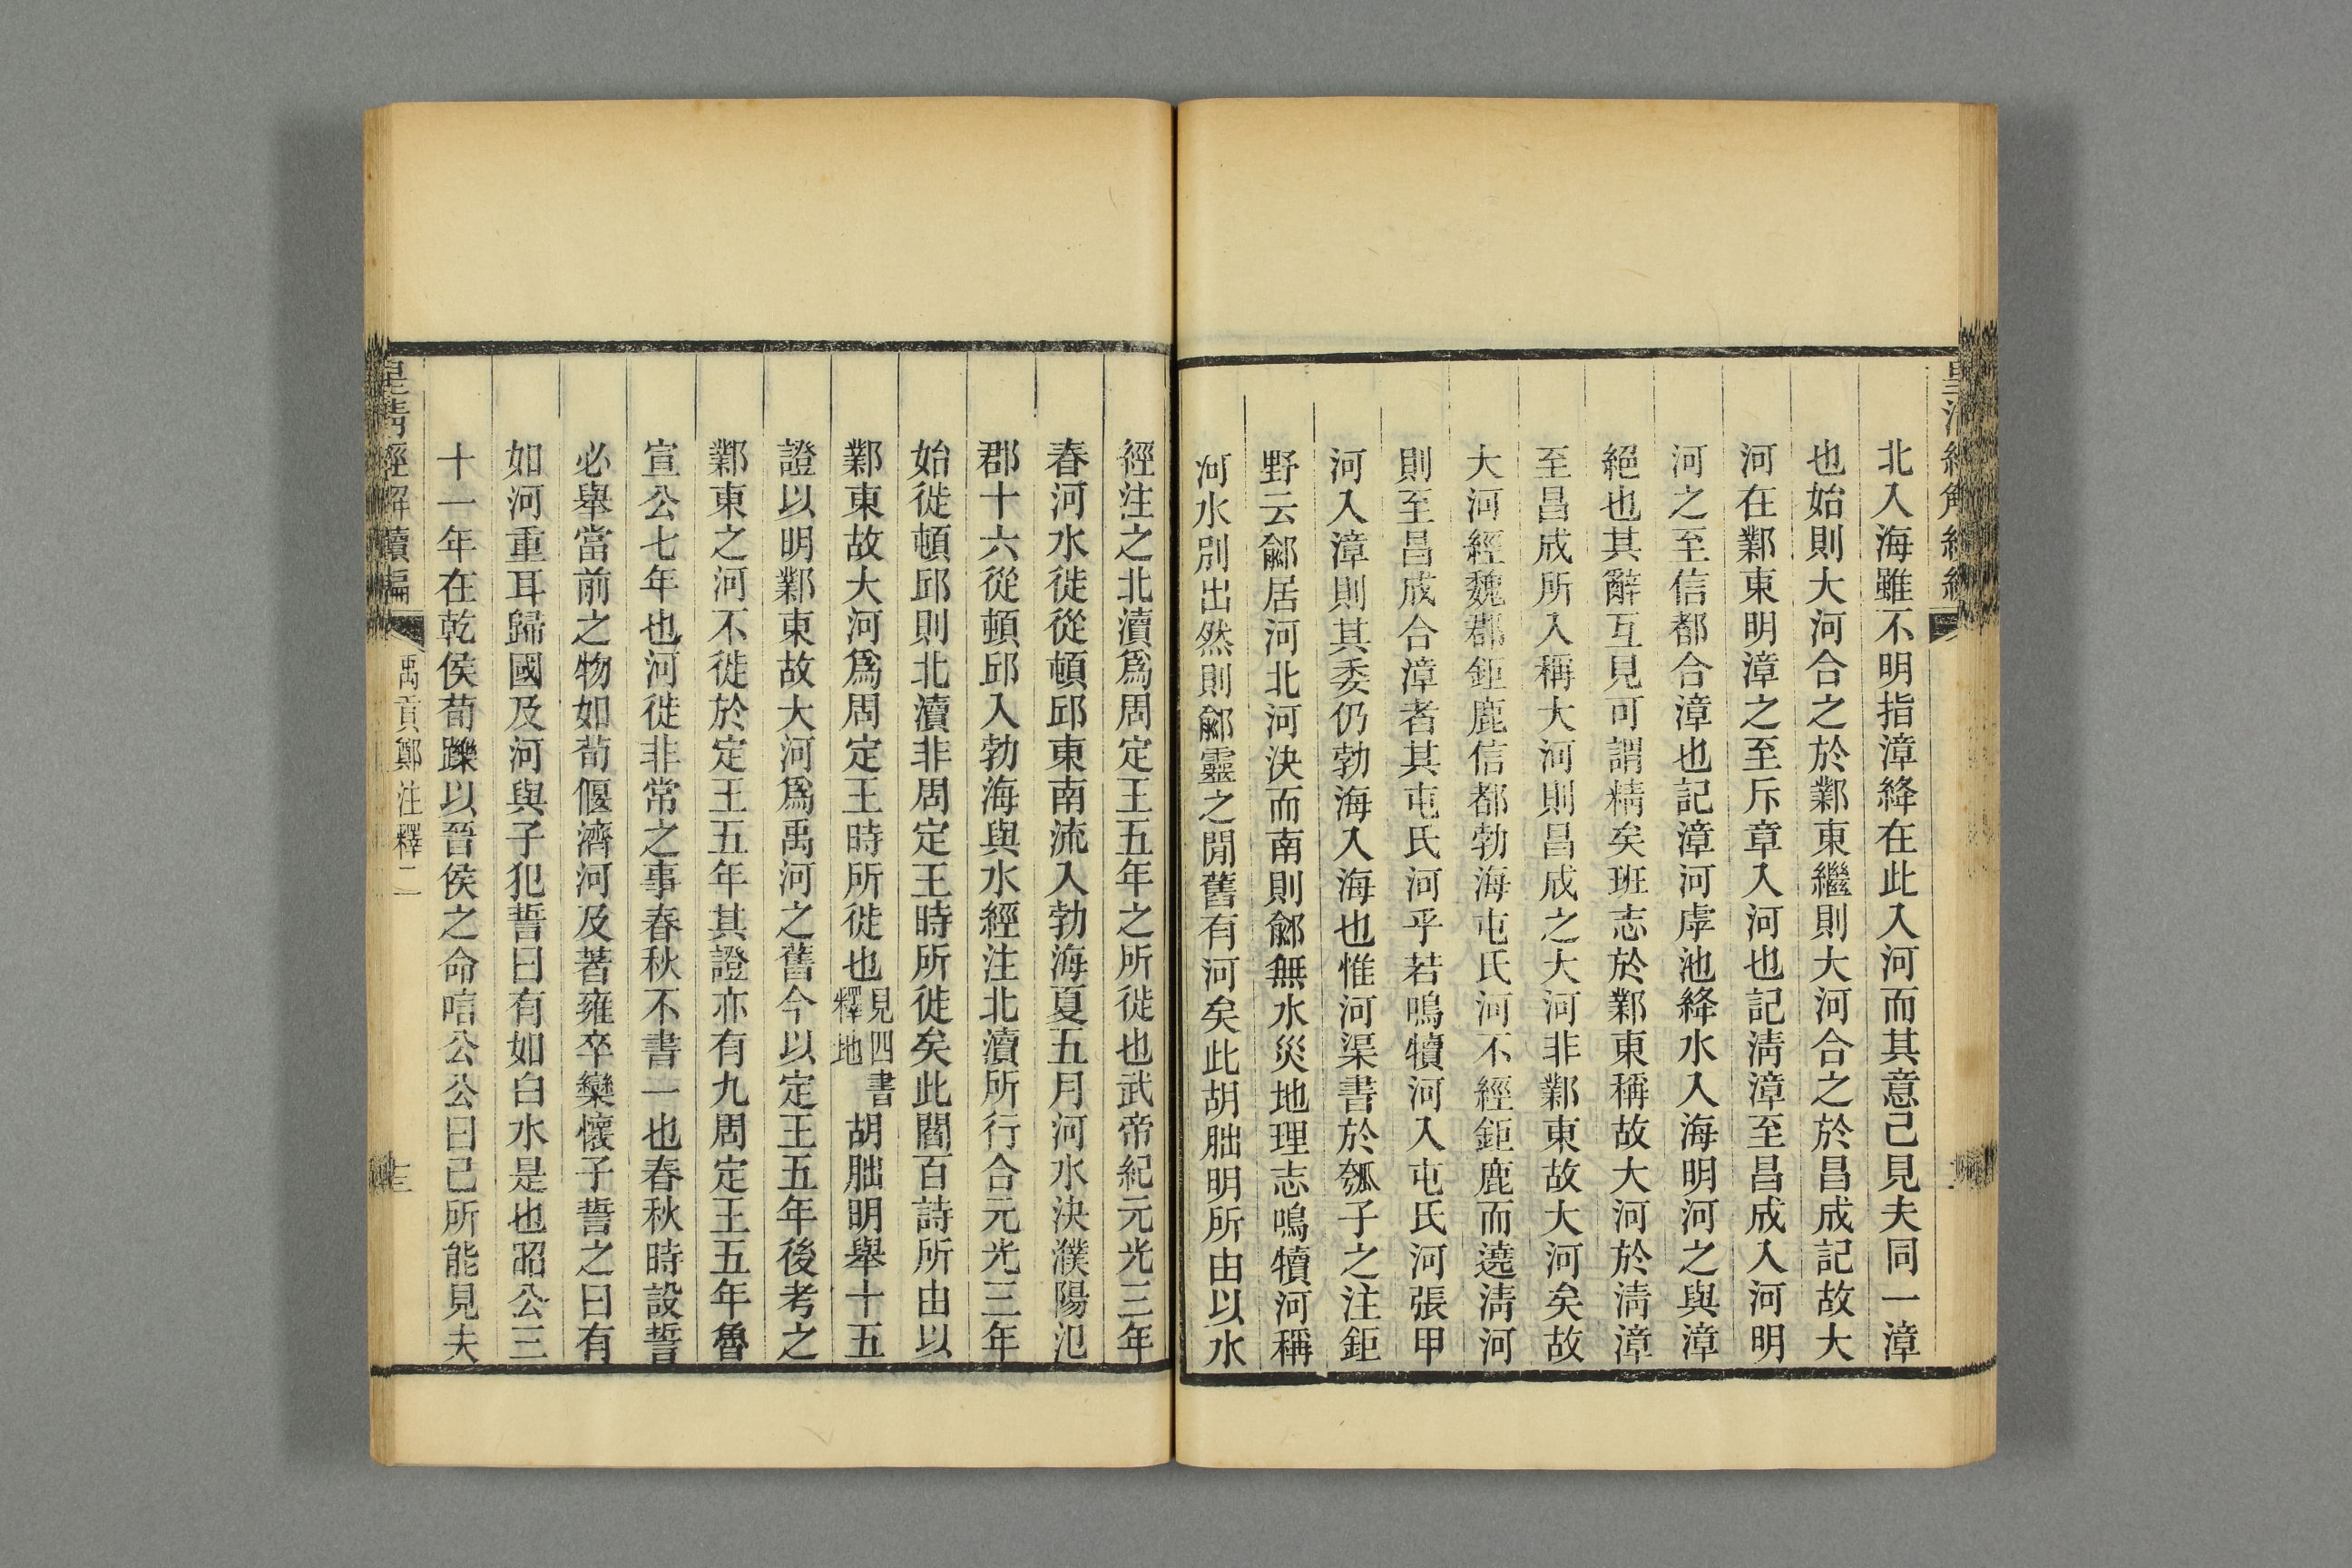 北入海雖不明指漳絳在此入河而其意己見夫同一漳
也始則大河合之於鄴東繼則大河合之於昌成記故大
河在鄴東明漳之至斥章入河也記淸漳至昌成入河明
河之至信都合漳也記漳河虖池絳水入海明河之與漳
絕也其辭互見可謂精矣班志於鄴東稱故大河於淸漳
至昌成所入稱大河則昌成之大河非鄴東故大河矣故
大河經魏郡鉅鹿信都勃海屯氏河不經鉅鹿而遶淸河
則至昌成合漳者其屯氏河乎若鳴犢河入屯氏河張甲
河入漳則其委仍勃海入海也惟河渠書於瓠子之注鉅
野云鄃居河北河決而南則鄃無水災地理志鳴犢河稱
河水別出然則鄃靈之閒舊有河矣此胡朏明所由以水
經注之北瀆爲周定王五年之所徙也武帝紀元光三年
春河水徙從頓邱東南流入勃海夏五月河水決濮陽氾
郡十六從頓邱入勃海與水經注北瀆所行合元光三年
始徙頓邱則北瀆非周定王時所徙矣此閻百詩所由以
鄴東故大河爲周定王時所徙也見四書釋地胡朏明舉十五
證以明鄴東故大河爲禹河之舊今以定王五年後考之
鄴東之河不徙於定王五年其證亦有九周定王五年魯
宣公七年也河徙非常之事春秋不書一也春秋時設誓
必舉當前之物如荀偃濟河及著雍卒欒懷子誓之曰有
如河重耳歸國及河與子犯誓曰有如白水是也昭公三
十一年在乾侯荀躒以晉侯之命唁公公曰己所能見夫
皇淸經解續編
禹貢鄭注釋二